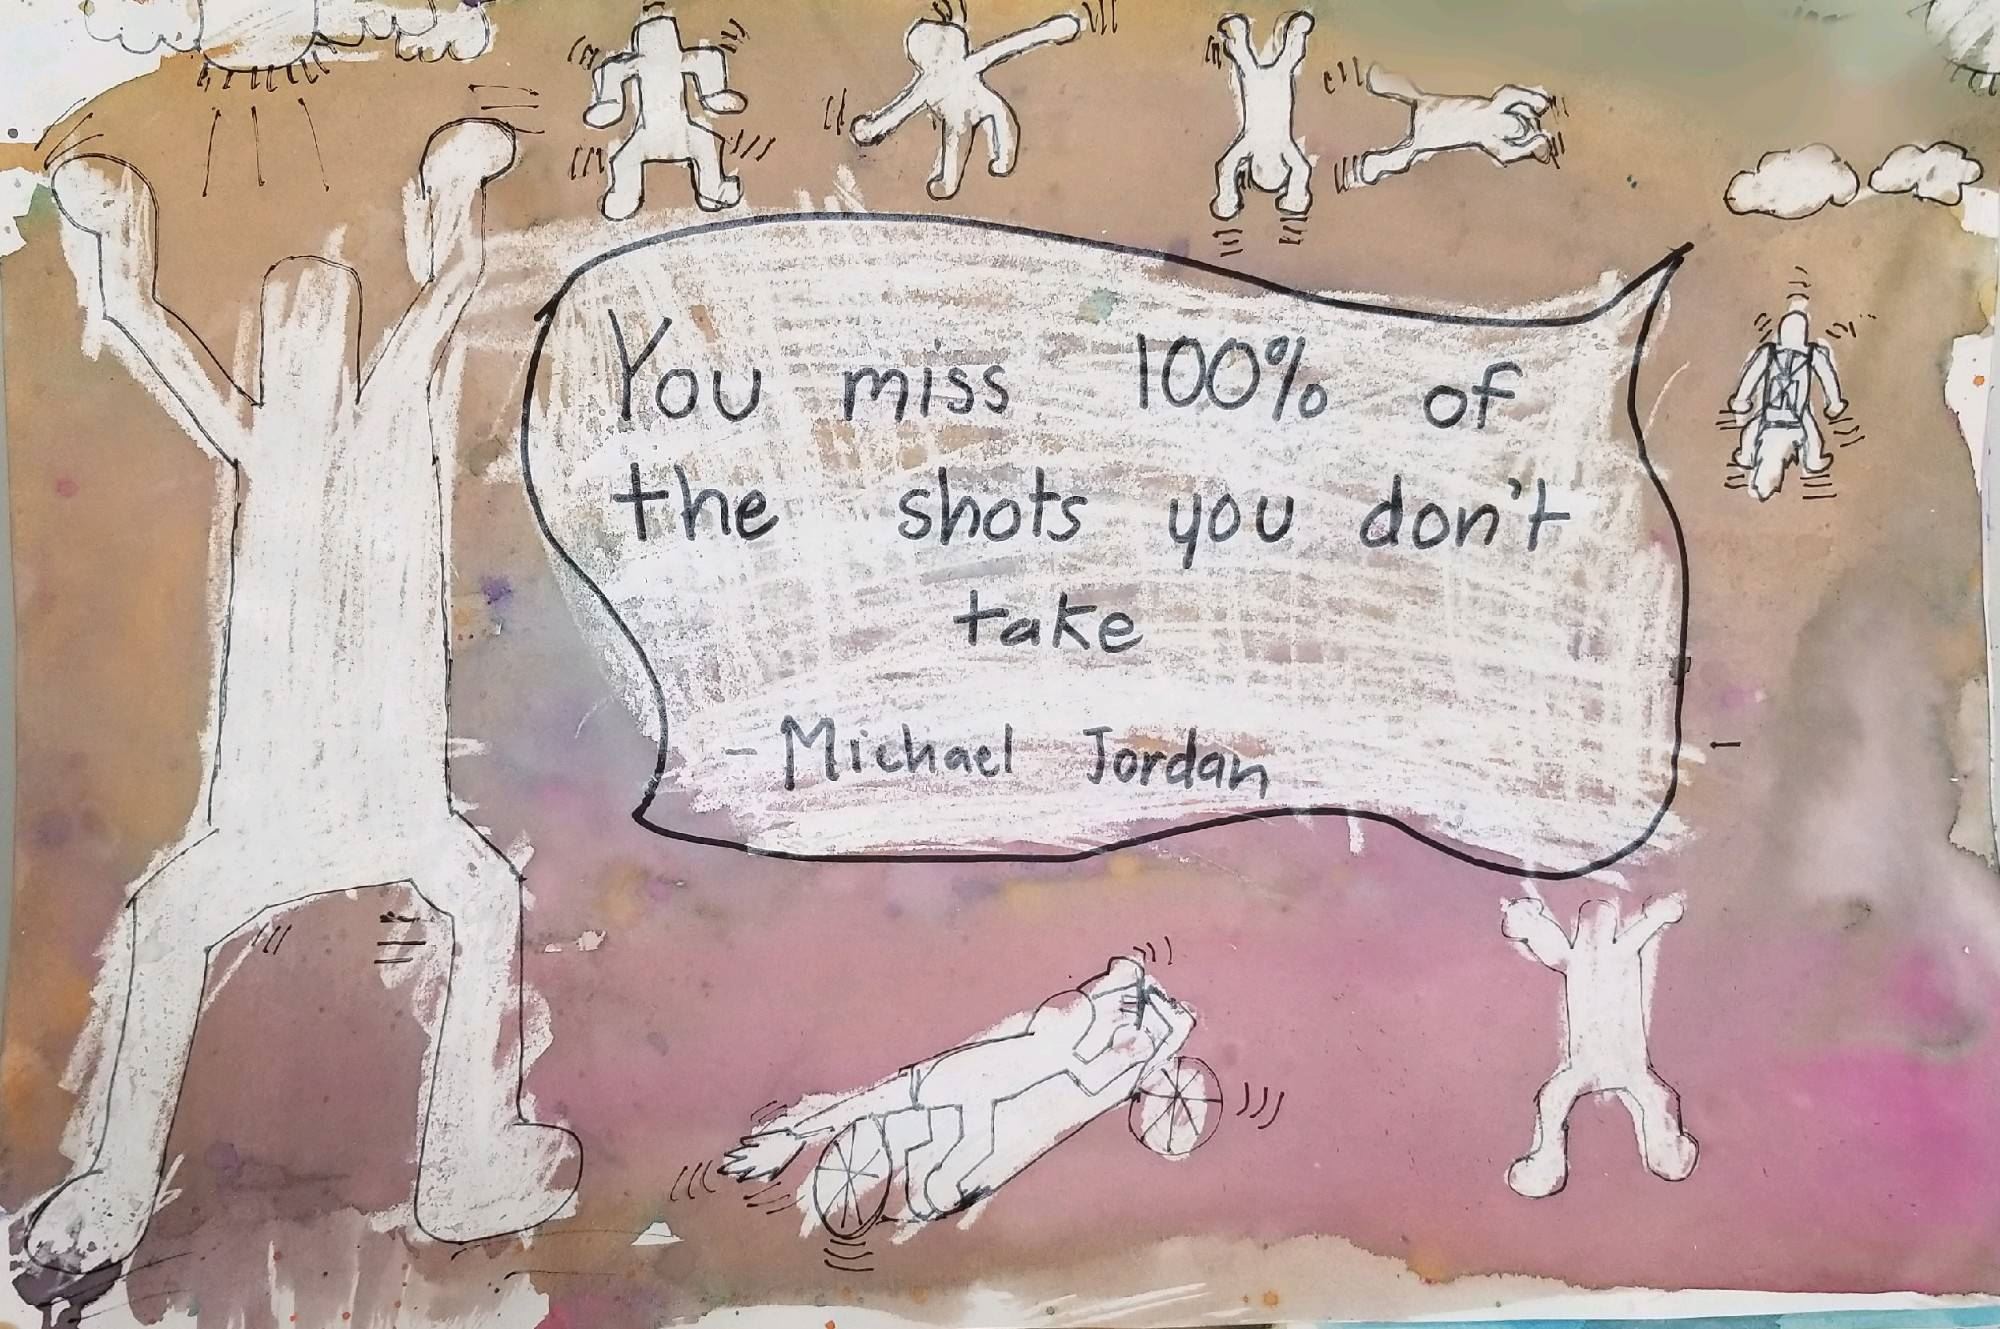 You miss 100% of
the shots you don't
take
- Michael Jordan